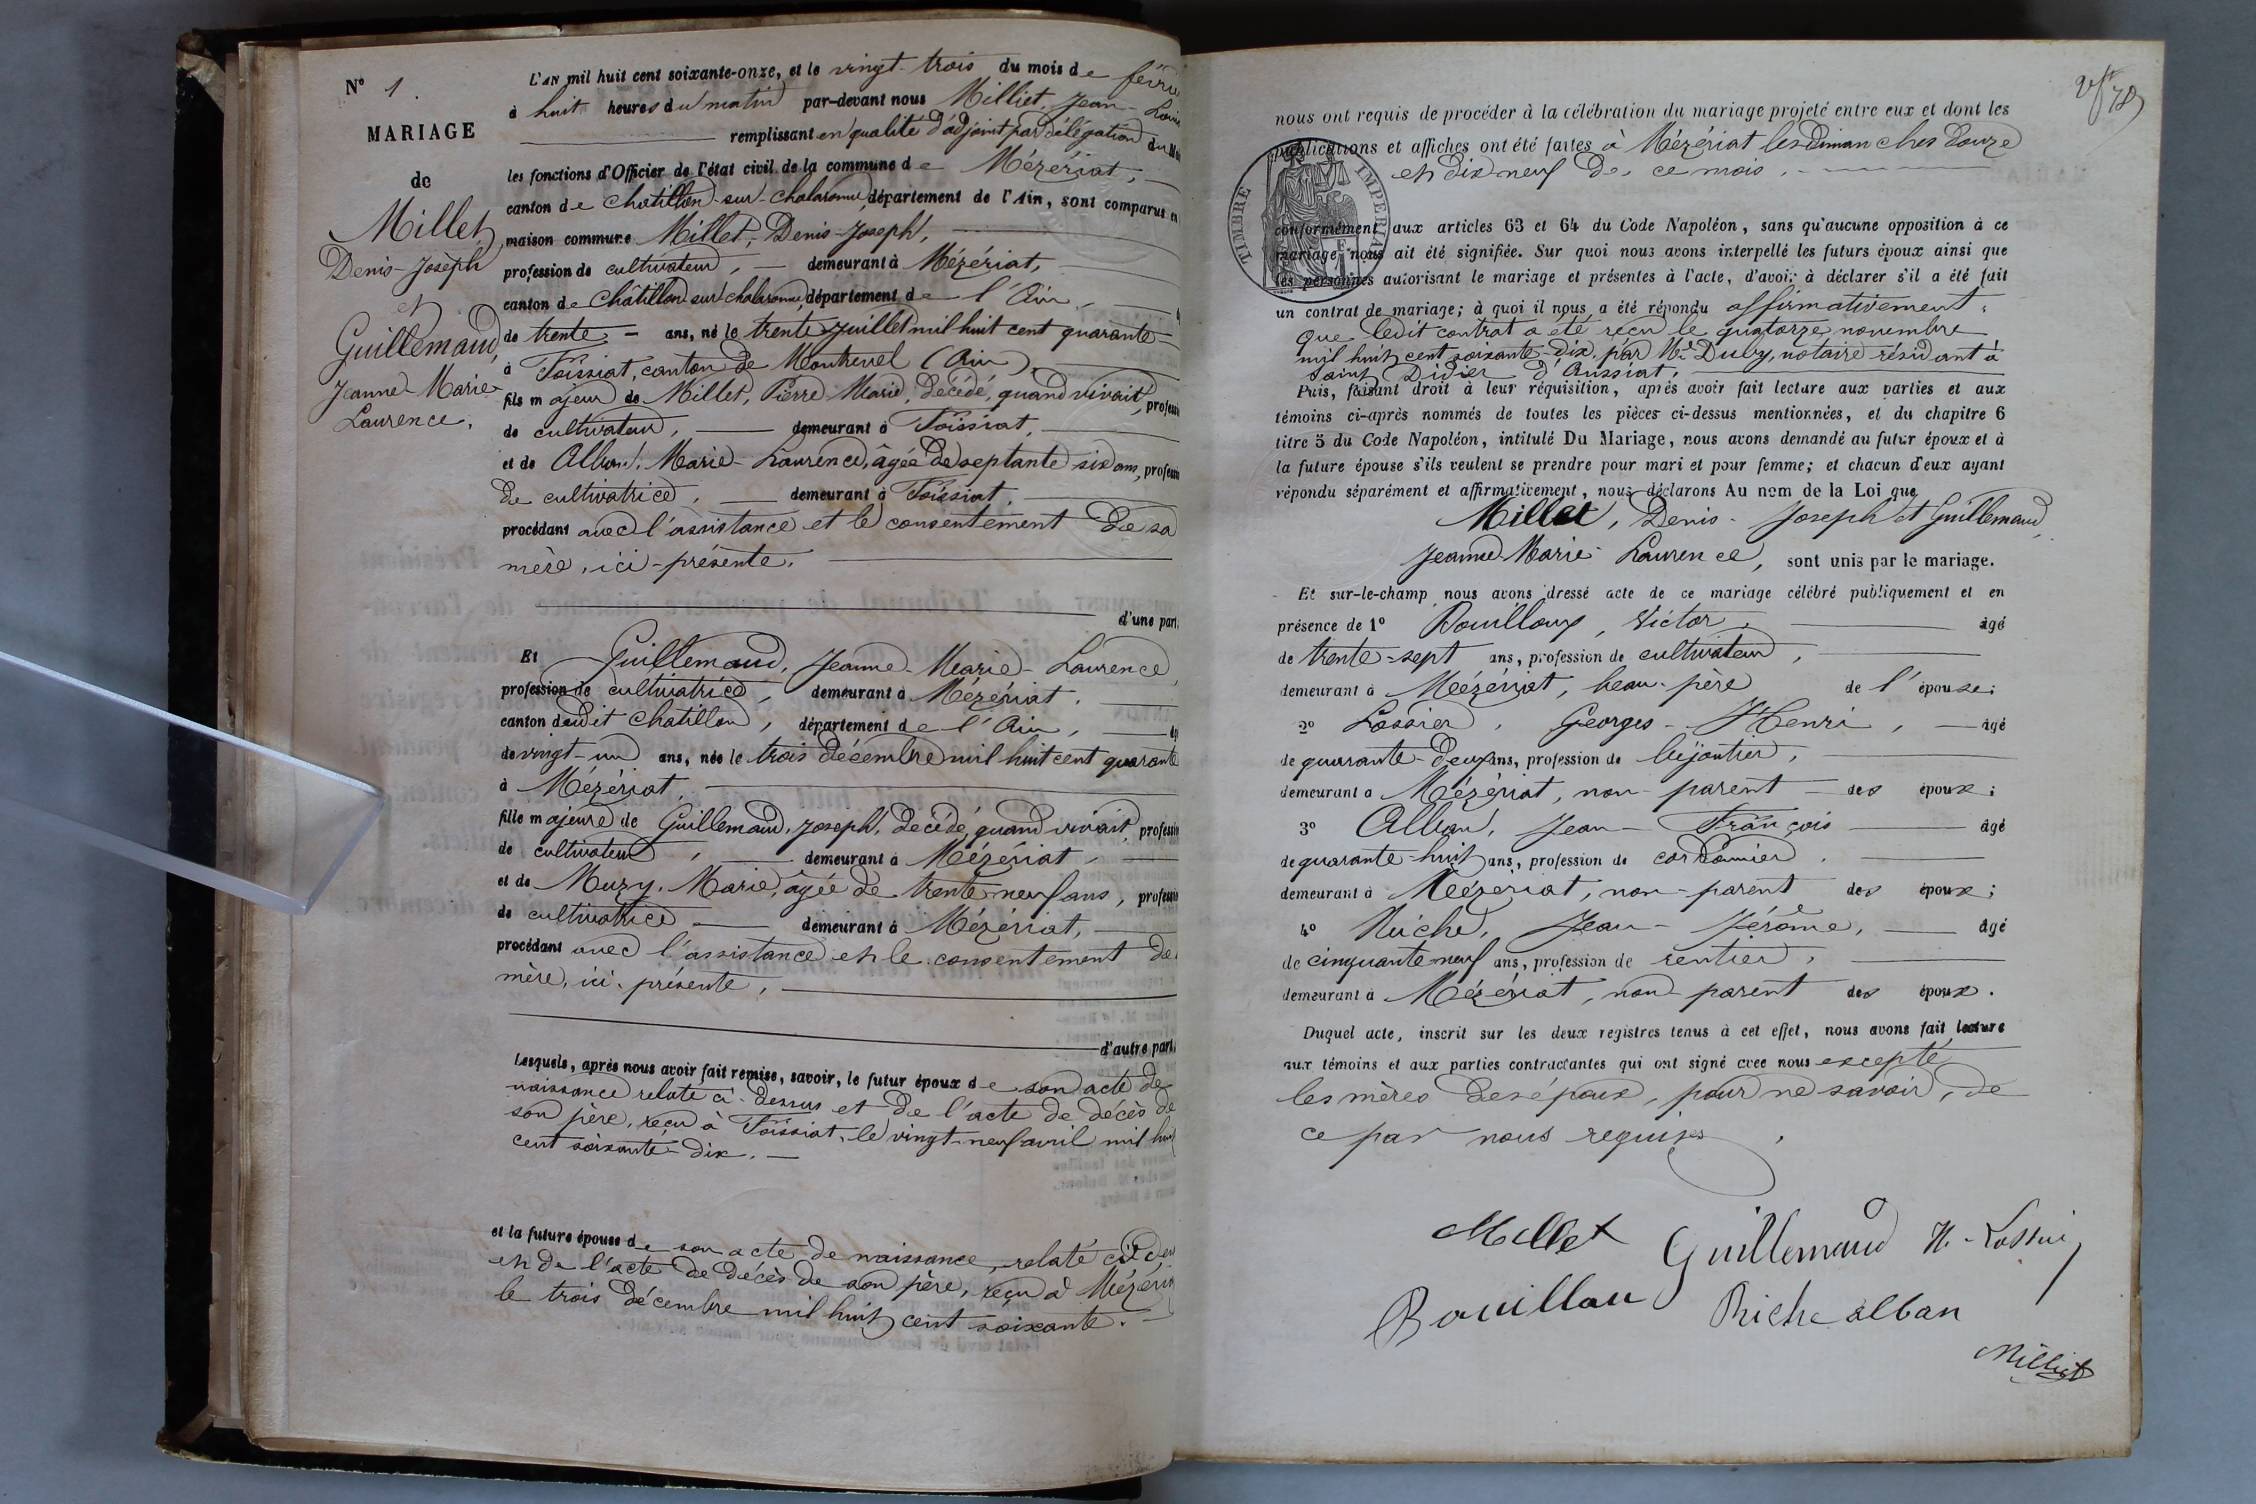 N° 1.
MARIAGE
de
Millet,
Denis-Joseph
et
Guillemaud,
Jeanne-Marie-
Laurence.
L'AN mil huit cent soixante-onze, et le vingt-trois du mois de
à huit heures du matin par-devant nous Milliet, Jean-Louis
remplissant en qualité d'adjoint par délégation du
les fonctions d'Officier de l'état civil de la commune de Mézériat,
canton de Chatillon-sur-chalaronne, département de l'Ain, sont comparus en
maison commune Millet, Denis-Joseph,
profession de cultivateur, demeurant à Mézériat,
canton de Châtillon sur chalaronne, département de l'Ain,
de trente ans, né le trente Juillet mil huit cent quarante
à Foissiat, canton de Montrevel (Ain),
fils majeur de Millet, Pierre-Marie, décédé, quand vivait,
de cultivateur, demeurant à Foissiat,
et de Marie-Laurence, âgée de septante six ans,
de cultivatrice, demeurant à Foissiat,
procédant avec l'assistance et le consentement de sa
mère, ici-présente,
d'une part,
Et Guillemaud, Jeanne-Marie-Laurence,
profession de cultivatrice, demeurant à Mézériat,
canton dudit Chatillon, département de l'Ain,
de vingt-un ans, née le trois décembre mil huit cent quarante
à Mézériat,
fille majeure de Guillemaud, Joseph, décédé, quand vivait,
de cultivateur, demeurant à Mézériat,
et de Muzy, Marie, âgée de trente-neuf ans,
de cultivatrice demeurant à Mézériat,
procédant avec l'assistance et le consentement de
mère, ici-présente,
d'autre part,
Lesquels, après nous avoir fait remise, savoir, le futur époux de son acte de
naissance relaté ci-dessus et de l'acte de décès de
son père, reçu à Foissiat, le vingt-neuf avril mil huit
cent soixante-dix.
et la future épouse de son acte de naissance, relaté
et de l'acte de décès de son père, reçu à
le trois décembre mil huit cent soixante.
78
nous ont requis de procéder à la célébration du mariage projeté entre eux et dont les
publications et affiches ont été faites à Mézériat les Dimanches Douze
et dix neuf de ce mois,
TIMBRE IMPERIAL
conformément aux articles 63 et 64 du Code Napoléon, sans qu'aucune opposition à ce
mariage nous ait été signifiée. Sur quoi nous avons interpellé les futurs époux ainsi que
les personnes autorisant le mariage et présentes à l'acte, d'avoir à déclarer s'il a été fait
un contrat de mariage; à quoi il nous a été répondu affirmativement,
que ledit contrat a été reçu le quatorze novembre
mil huit cent soixante-dix, par Me Duby, notaire résidant à
Saint Didier d'Aussiat.
Puis, faisant droit à leur réquisition, après avoir fait lecture aux parties et aux
témoins ci-après nommés de toutes les pièces ci-dessus mentionnées, et du chapitre 6
titre 5 du Code Napoléon, intitulé Du Mariage, nous avons demandé au futur époux et à
la future épouse s'ils veulent se prendre pour mari et pour femme; et chacun d'eux ayant
répondu séparément et affirmativement, nous déclarons Au nom de la Loi que
Millet, Denis-Joseph et Guillemaud,
Jeanne-Marie-Laurence, sont unis par le mariage.
Et sur-le-champ nous avons dressé acte de ce mariage célébré publiquement et en
présence de 1° Bouilloux, Victor, âgé
de trente-sept ans, profession de cultivateur,
demeurant à Mézériat, beau-père de l'épouse;
2° Lossier, Georges-Henri, âgé
de quarante-deux ans, profession de bijoutier,
demeurant à Mézériat, non-parent des époux;
3° Alban, Jean-François âgé
de quarante-huit ans, profession de cordonnier,
demeurant à Mézériat, non-parent des époux;
4° Riche, Jean-Jérôme, âgé
de cinquante-neuf ans, profession de rentier,
demeurant à Mézériat, non-parent des époux.
Duquel acte, inscrit sur les deux registres tenus à cet effet, nous avons fait lecture
aux témoins et aux parties contractantes qui ont signé avec nous excepté
les mères des époux, pour ne savoir, de
ce par nous requises.
Millet Guillemaud
Riche alban
Milliet